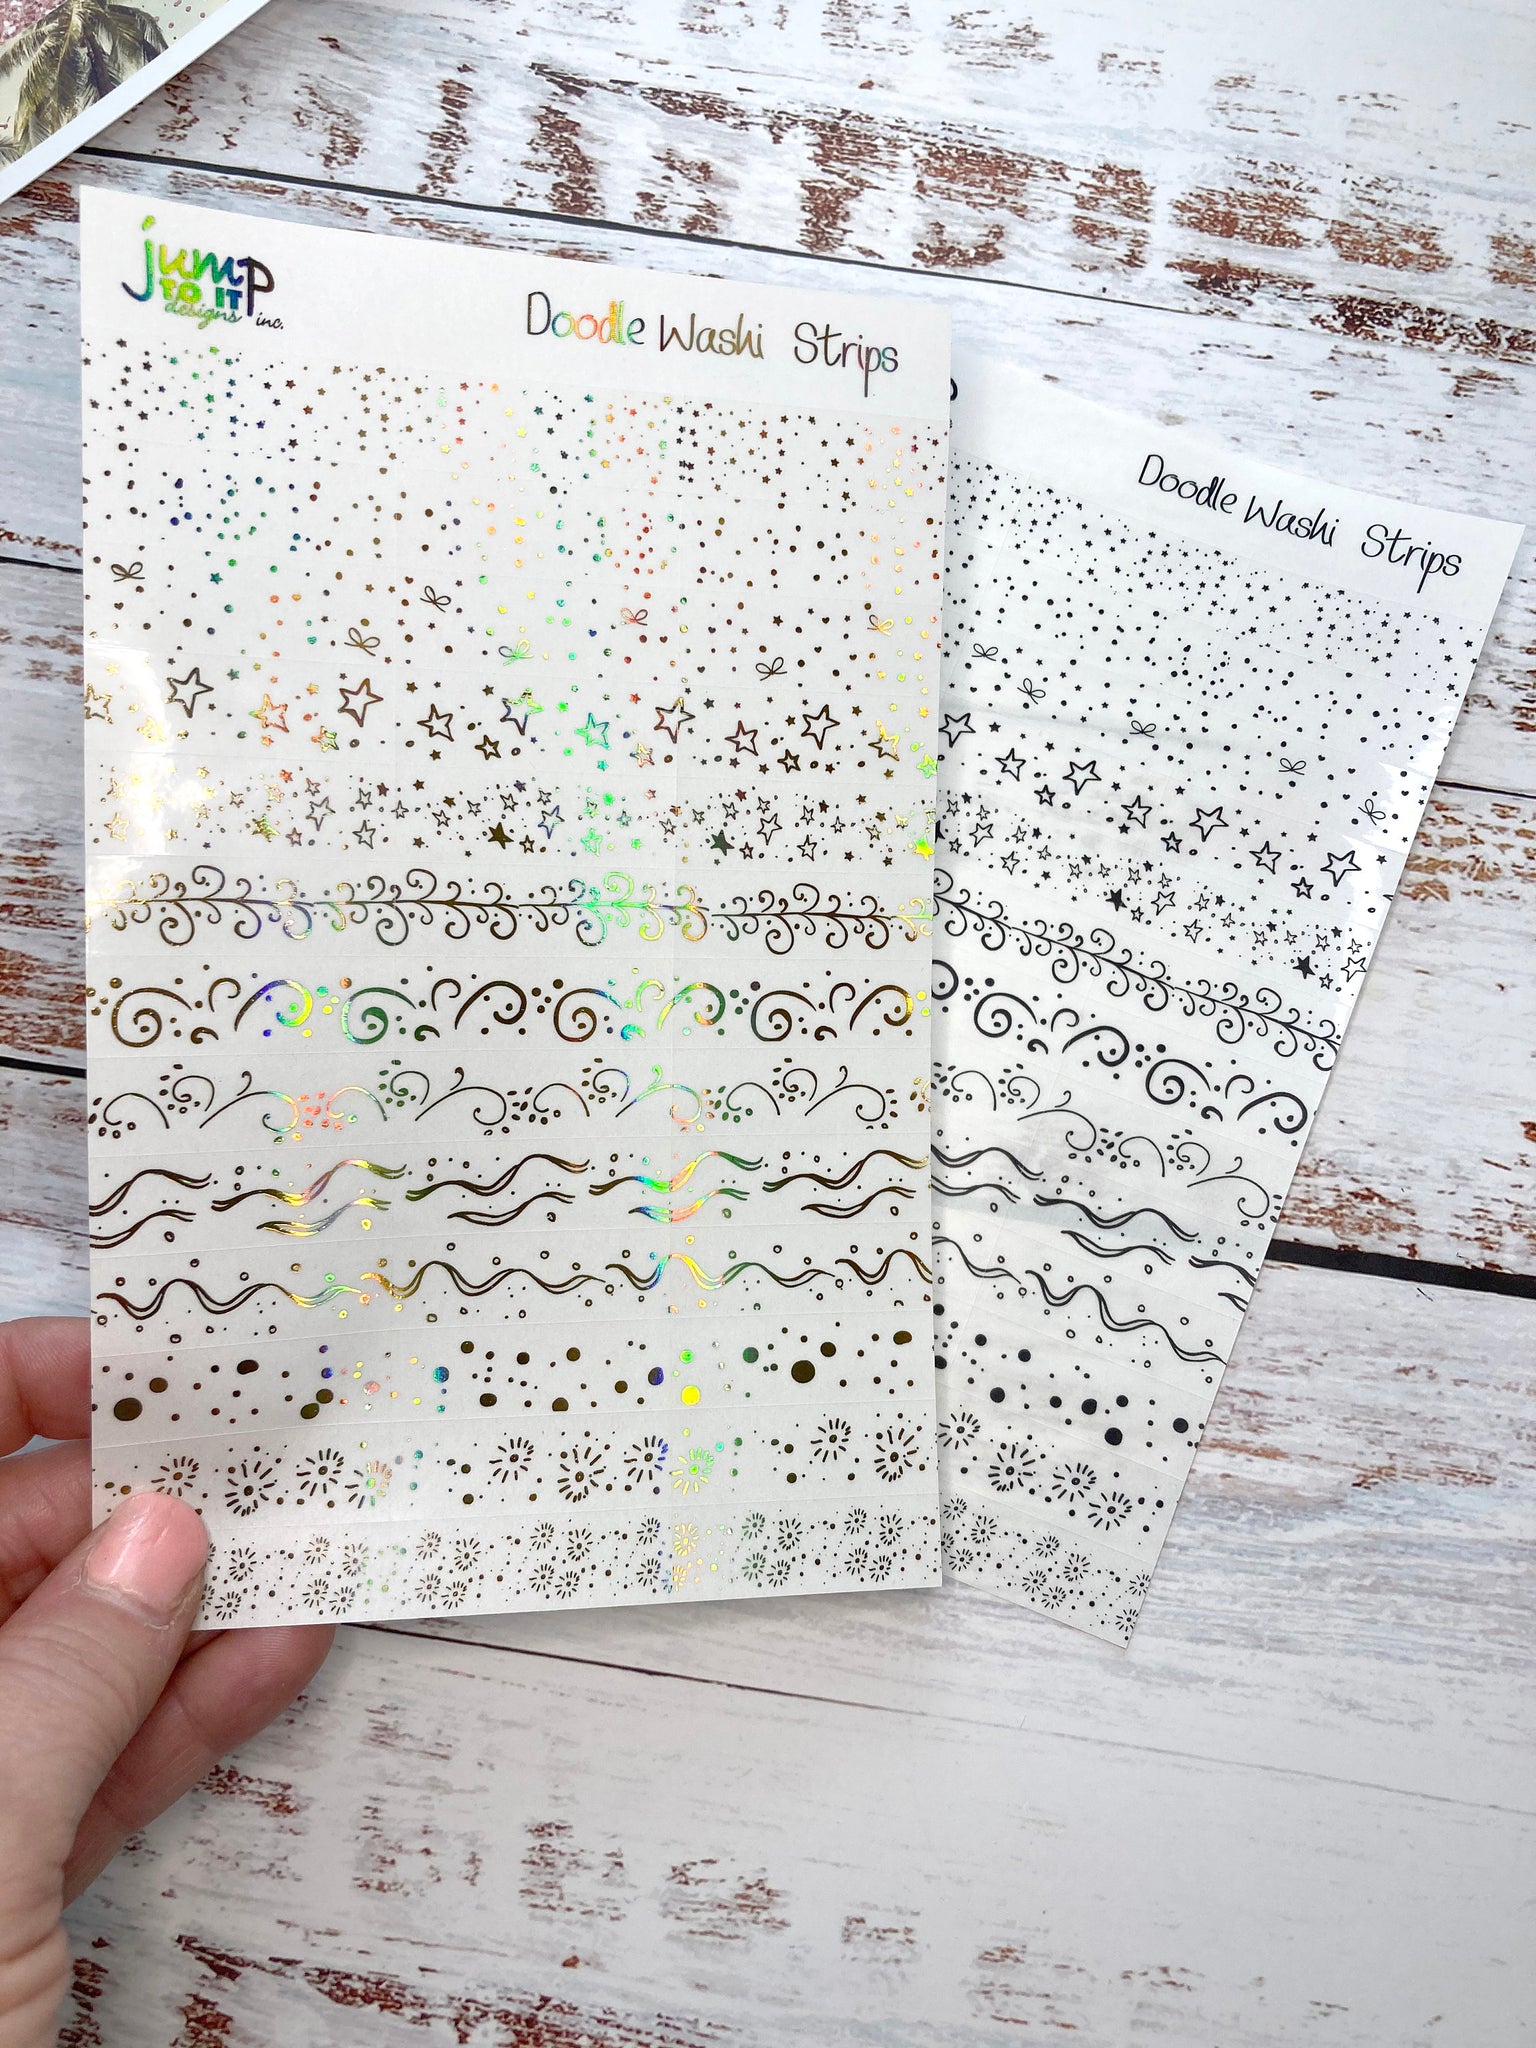 jump
TO IT
designs inc.
Doodle Washi Strips
Doodle Washi Strips